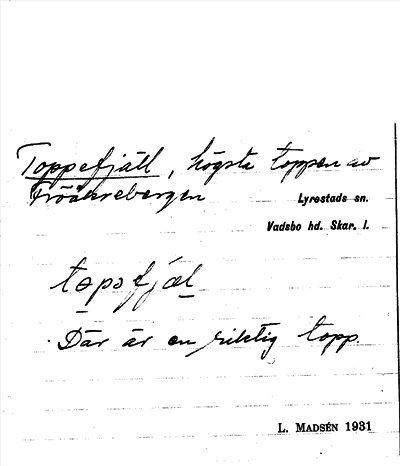 Toppefjäll, högsta toppen av
Fröåkrebergen
Lyrestads sn.
Vadsbo hd. Skar. l.
tɒpəfjæl
Där är en riktig topp.
L. MADSÉN 1931